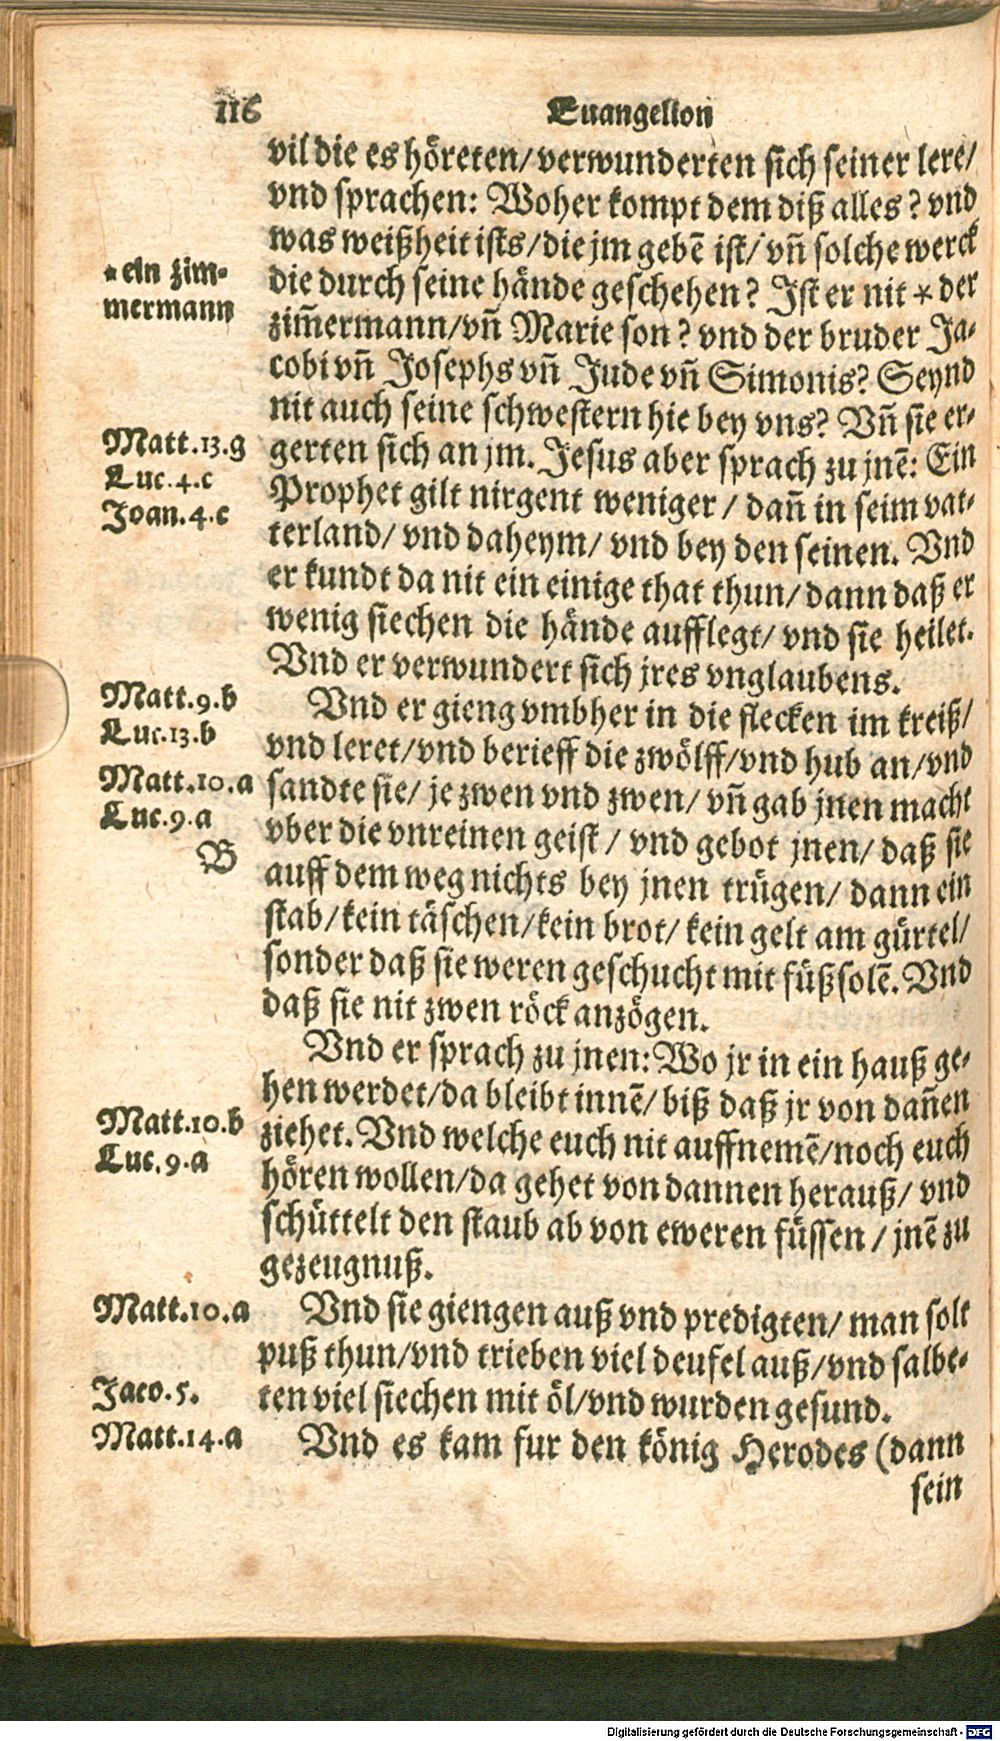 116
Euangelion
vil die es höreten/ verwunderten sich seiner lere/
vnd sprachen: Woher kompt dem diß alles? vnd
was weißheit ists/ die jm gebẽ ist/ vñ solche werck
die durch seine hände geschehen? Ist er nit * der
* ein zim-
mermann
zim̃ermann/ vñ Marie son? vnd der bruder Ja-
cobi vñ Josephs vñ Jude vñ Simonis? Seynd
nit auch seine schwestern hie bey vns? Vñ sie er-
Matt.13.g
gerten sich an jm. Jesus aber sprach zu jnẽ: Ein
Luc.4.c
Prophet gilt nirgent weniger / dañ in seim vat-
Joan.4.c
terland/ vnd daheym/ vnd bey den seinen. Vnd
er kundt da nit ein einige that thun/ dann daß er
wenig siechen die hände aufflegt/ vnd sie heilet.
Vnd er verwundert sich jres vnglaubens.
Matt.9.b
Vnd er gieng vmbher in die flecken im kreiß/
Luc.13.b
vnd leret/ vnd berieff die zwölff/ vnd hub an/ vnd
Matt.10.a
sandte sie/ je zwen vnd zwen/ vñ gab jnen macht
Luc.9.a
vber die vnreinen geist / vnd gebot jnen/ daß sie
B
auff dem weg nichts bey jnen trügen/ dann ein
stab/ kein täschen/ kein brot/ kein gelt am gürtel/
sonder daß sie weren geschucht mit füßsolẽ. Vnd
daß sie nit zwen röck anzögen.
Vnd er sprach zu jnen: Wo jr in ein hauß ge-
hen werdet/ da bleibt innẽ/ biß daß jr von dañen
Matt.10.b
ziehet. Vnd welche euch nit auffnemẽ/ noch euch
Luc.9.a
hören wollen/ da gehet von dannen herauß/ vnd
schüttelt den staub ab von eweren füssen / jnẽ zu
gezeugnuß.
Matt.10.a
Vnd sie giengen auß vnd predigten/ man solt
puß thun/ vnd trieben viel deufel auß/ vnd salbe-
Jaco.5.
ten viel siechen mit öl/ vnd wurden gesund.
Matt.14.a
Vnd es kam fur den könig Herodes (dann
sein
Digitalisierung gefördert durch die Deutsche Forschungsgemeinschaft - DFG